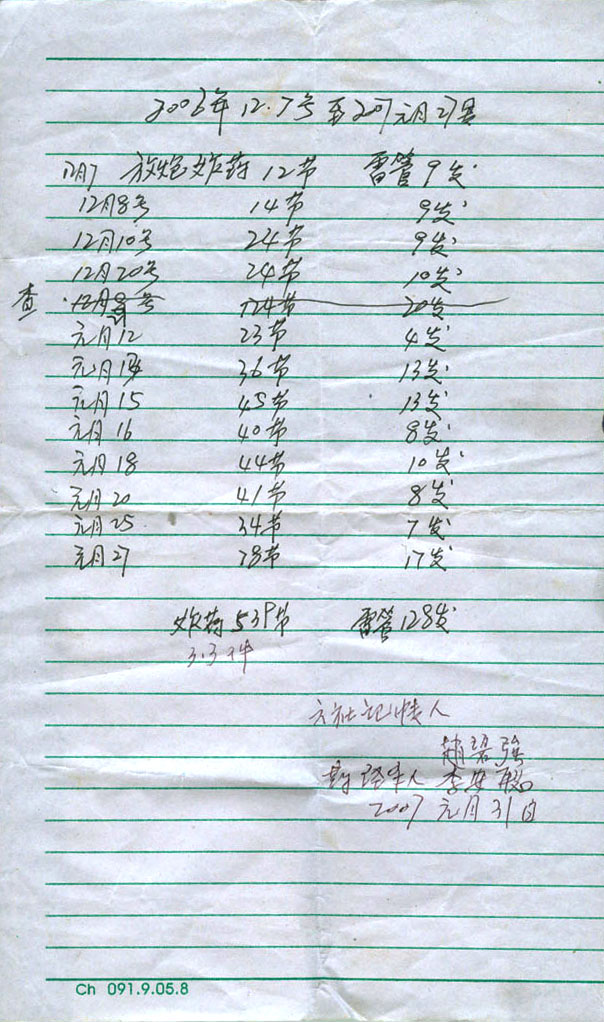 2006年12.7号至207元月27号
12月7 放炮炸药 12节 雷管 9发
12月8号 14节 9发
12月10号 24节 9发
12月20号 24节 10发
查 12月 号 124节 20发
元月12 23节 4发
元月14 36节 13发
元月15 45节 13发
元月16 40节 8发
元月18 44节 10发
元月20 41节 8发
元月25 34节 7发
元月27 78节 17发
炸药539节 雷管128发
3.3件
六社记帐人
赵碧强
经手人 李安
2007 元月31日
Ch 091.9.05.8